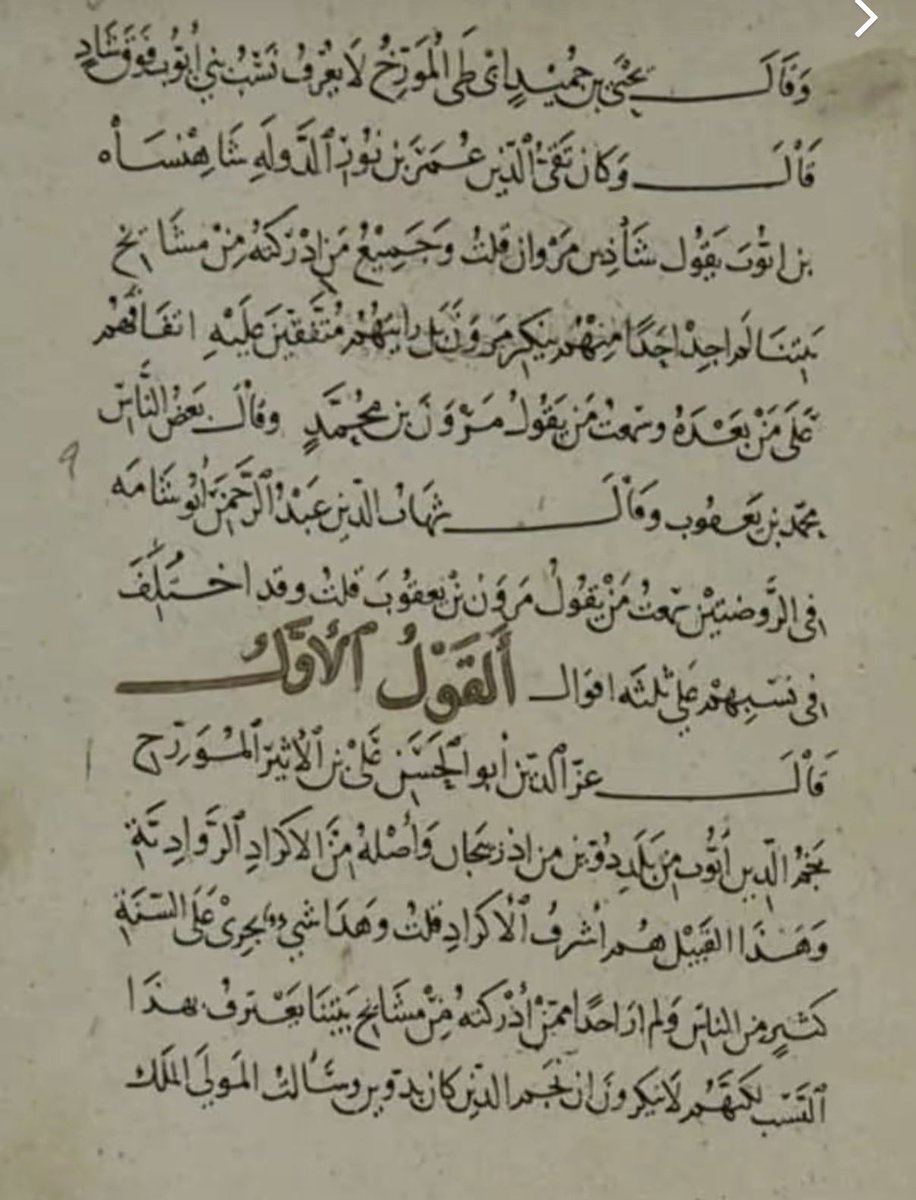 وَقَالَ يَحْيَى بن حُمَيْدٍ ابن أبى طَى المُوَرِّخُ لَا يعْرفُ نَسَبُ بَنى أَيّوُبَ فَوقَ شَادِى
قَاْلَ وَكانَ تَقىُّ الدّين عُمَرَ بن نوُرِ الدَّولَةِ شَاهِنْشَاْه
بن ايّوُبَ يقَوُل شَاْذِى بن مَرْوان قلتُ وَجَمِيْعُ مَن ادْرَكتهُ مِنْ مشَايخ
بَيتنَا لَم اجِدْ احَدًا مِنْهُم ينكِر مَروَنَ بَل رايتهُم مُتَّفقينَ عَلَيْهِ اتفَاقهُم
عَلَى مَنْ بعَدَهُ وسَمعتُ مَن يَقوُلُ مَرْوَنَ بن محُمَّدٍ وقَاْلَ بعَضُ النَّاسِ
محمّد بن يَعَقوُب وقَاْلَ شهَابُ الدّين عَبْدُ الرَّحمْنِ أبُو شامَه
فى الرَّوضتيْن سَمعتُ مَنْ يقُولُ مَروَنْ بنْ يعقوُبَ قلتُ وقد اخْتُلِفَ
فى نسَبِهِمْ عَلى ثلثَه اقوَال أَلقَوْلُ الأَوَّلُ
قَاْلَ عزّ الدّين أبو الحَسَن عَلىّ بن الأَثيرِ المُوَرّخ
نجَمُ الدّين أيّوُب من بَلَدِ دُوِين من اذربيجَان وَأَصْلهُ مِنَ الاكرَادِ الرَّوَادِيَّةِ
وَهَذا القَبيْل هُم أشرفُ الأكرَادِ قلتُ وهَذا شىء يجرِىْ عَلَى السنَةِ
كَثيرٍ من النّاس وَلم ارَ احَدًا ممَّنْ أدْركتهُ مِنْ مشَايخ بَيتنَا يعَترفُ بهذَا
النَّسَب لكنّهَّم لَا ينكرونَ ان نجَم الدّين كانَ بدوين وسَألتُ المَولَى الملك